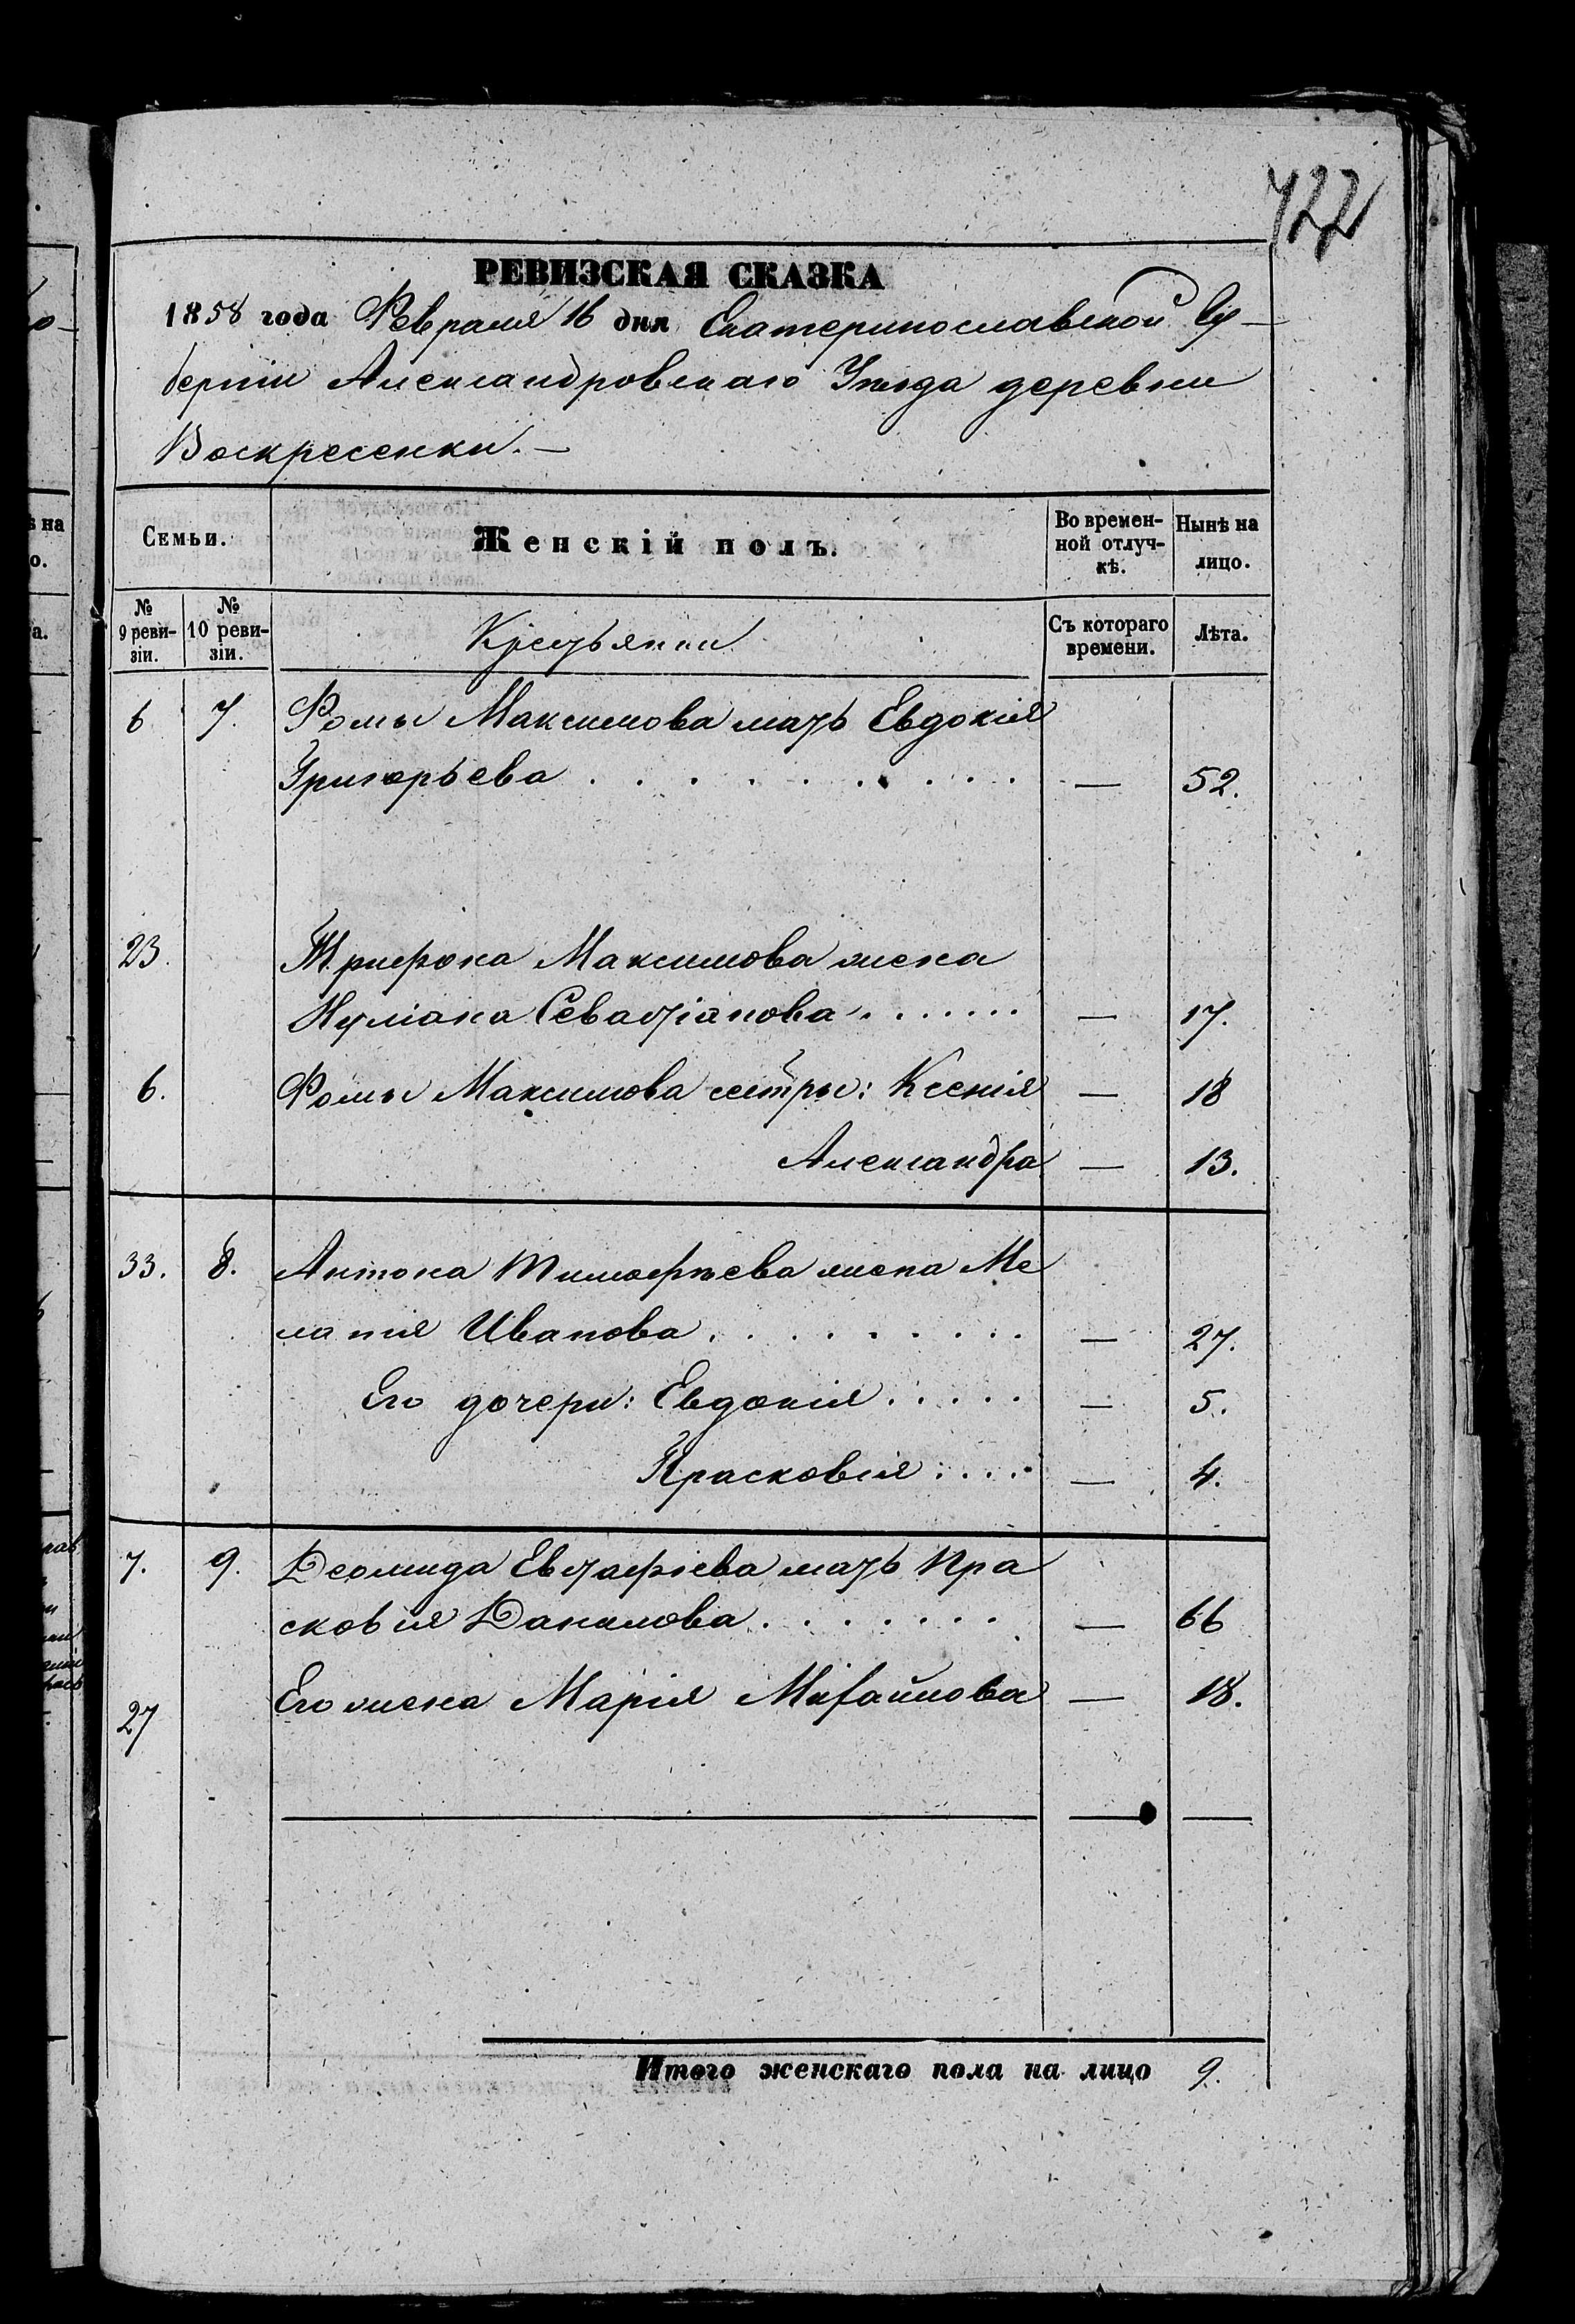 722
РЕВИЗСКАЯ СКАЗКА
1858 года Февраля 16 дня Екатеринославской Гу-
берніи Александровскаго Уѣзда деревни
Воскресенки. —
Семьи. Женскій полъ. Во времен-ной отлуч-кѣ. Нынѣ на лицо.
№ 9 реви-зіи. № 10 реви-зіи. Крестьянки Съ котораго времени. Лѣта.
6 7. Фомы Максимова мать Евдокія
Григорьева . . . . . . . . — 52.
23. Трифона Максимова жена
Иуліана Севастіанова . . . . . . . — 17.
6. Фомы Максимова сестры: Ксенія — 18
Александра — 13.
33. 8. Антона Тимофѣева жена Ме
ланія Иванова . . . . . . . . — 27.
Его дочери: Евдокія . . . . . — 5.
Прасковія . . . . — 4.
7. 9. Деомида Евстафіева мать Пра
сковія Данилова . . . . . . . — 66
27 Его жена Марія Михайлова — 18.
Итого женскаго пола на лицо 9.